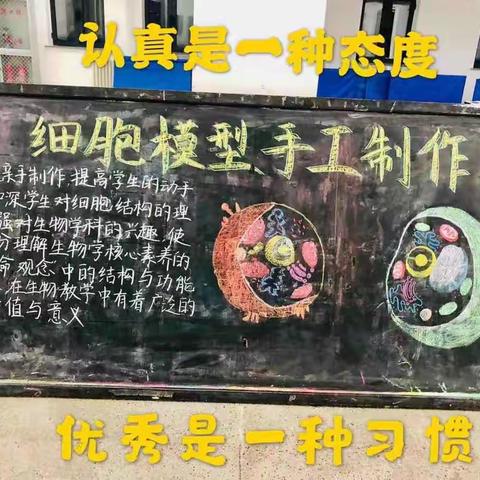 认真是一种态度
细胞模型手工制作
亲手制作,提高学生的动手
深学生对细胞结构的理
强对生物学科的兴趣,使
分理解生物学核心素养的
命观念中的结构与功能
在生物教学中有着广泛的
值与意义
优秀是一种习惯